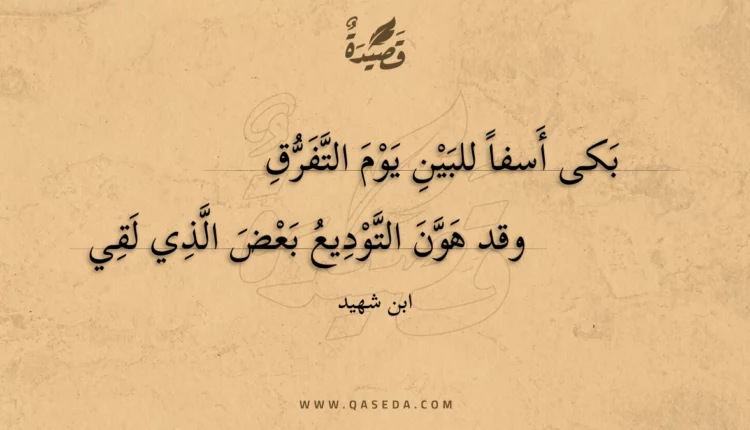 قَصِيدَةٌ
بَكى أَسفاً للبَيْنِ يَوْمَ التَّفَرُّقِ
وقد هَوَّنَ التَّوْدِيعُ بَعْضَ الَّذِي لَقِي
ابن شهيد
WWW.QASEDA.COM